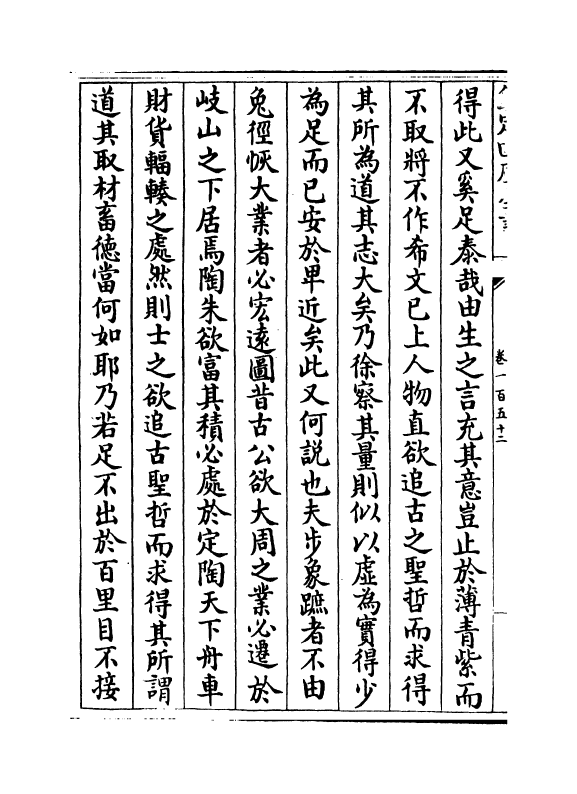 卷一百五十二
得此又奚足泰哉由生之言充其意豈止於薄青紫而
不取將不作希文已上人物直欲追古之聖哲而求得
其所為道其志大矣乃徐察其量則似以虛為實得少
為足而已安於卑近矣此又何說也夫步象蹠者不由
兔徑恢大業者必宏遠圖昔古公欲大周之業必遷於
岐山之下居焉陶朱欲富其積必處於定陶天下舟車
財貨輻輳之處然則士之欲追古聖哲而求得其所謂
道其取材畜德當何如耶乃若足不出於百里目不接